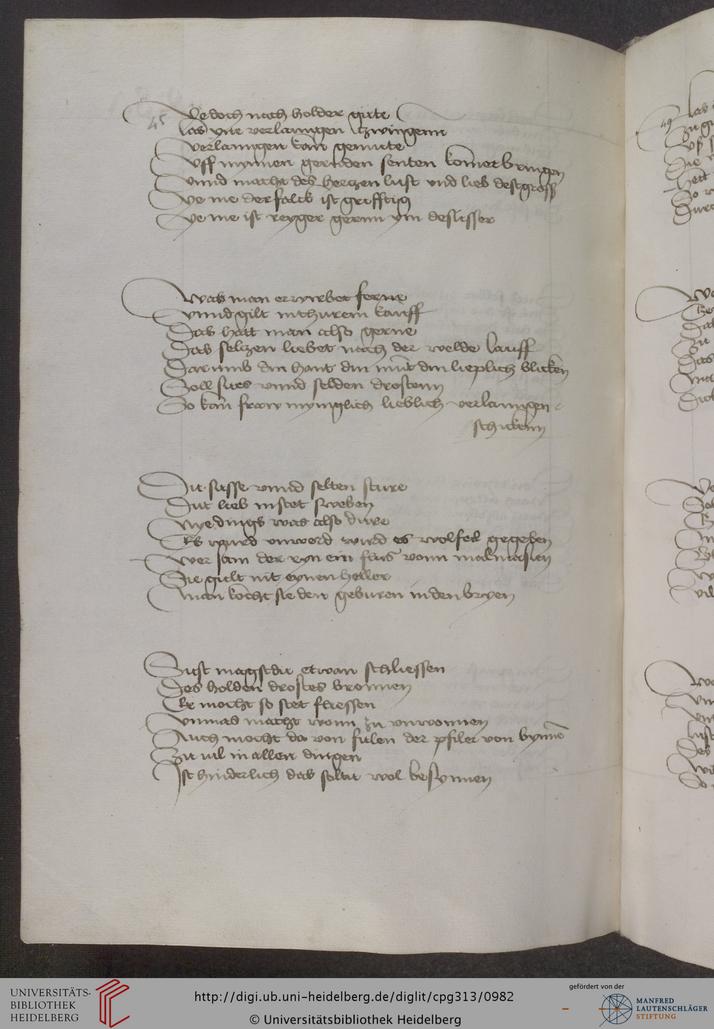 45
Yedoch nach holder gute
las dye verlanngen zwingenn
verlanngen kan gemute
Vff mynnen gernden senten komer bringen
vnnd macht des hertzen lust vnd lieb destgrosß
ye me der falck ist grifftig
ye me ist reyger gernn ym deslasser
Was man erwirbet ferne
vnnd gilt in thurem kauff
Das hatt man also gerne
Das seltzen liebet nach der welde lauff
Darumb din hant din munt din lieplich blicken
Soll suess vnnd selden drostenn
So kan fraw mynglich lieblich verlanngen
schickenn
Die susse vnnd selten sture
Dut lieb in stet sweben
nye dings was also dure
Es wurd vnwerd wurd es wolfeil gegeben
wer sam der ryn ein flus vonn malmasien
Sie gult nit eynen heller
man kocht sie den geburen in den bryen
Sust magstdu etwan schliessen
Des holden drostes bronnen
Er mocht so stet fliessen
vnmas macht wonn zu vnwonnen
Auch mocht da von fulen der pfiler von bynne
Zu uil in allen dingen
Ist hinderlich das soltu wol besynnen
49
UNIVERSITÄTS-
BIBLIOTHEK
HEIDELBERG
http://digi.ub.uni-heidelberg.de/diglit/cpg313/0982
© Universitätsbibliothek Heidelberg
gefördert von der
MANFRED
LAUTENSCHLÄGER
STIFTUNG